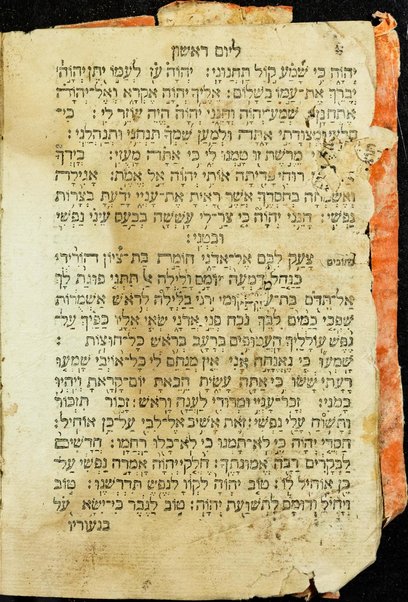 ליום ראשון
יְהֹוָה כִּי שָׁמַע קוֹל תַּחֲנוּנָי׃ יְהֹוָה עֹז לְעַמּוֹ יִתֵּן יְהֹוָה
יְבָרֵךְ אֶת־עַמּוֹ בַשָּׁלוֹם׃ אֵלֶיךָ יְהֹוָה אֶקְרָא וְאֶל־יְהֹוָה
אֶתְחַנָּן׃ שְׁמַע־יְהֹוָה וְחָנֵּנִי יְהֹוָה הֱיֵה עוֹזֵר לִי׃ כִּי־
סַלְעִי וּמְצוּדָתִי אָתָּה וּלְמַעַן שִׁמְךָ תַּנְחֵנִי וּתְנַהֲלֵנִי׃
מֵרֶשֶׁת זוּ טָמְנוּ לִי כִּי אַתָּה מָעֻזִּי׃ בְּיָדְךָ
רוּחִי פָּדִיתָה אוֹתִי יְהֹוָה אֵל אֱמֶת׃ אָגִילָה
וְאֶשְׂמְחָה בְּחַסְדֶּךָ אֲשֶׁר רָאִיתָ אֶת־עָנְיִי יָדַעְתָּ בְּצָרוֹת
נַפְשִׁי׃ חָנֵּנִי יְהֹוָה כִּי צַר־לִי עָשְׁשָׁה בְכַעַס עֵינִי נַפְשִׁי
וּבִטְנִי׃
כתובים צָעַק לִבָּם אֶל־אֲדֹנָי חוֹמַת בַּת־צִיּוֹן הוֹרִידִי
כַנַּחַל דִּמְעָה יוֹמָם וָלַיְלָה אַל תִּתְּנִי פוּגַת לָךְ
אַל־תִּדֹּם בַּת־עֵינֵךְ׃ קוּמִי רֹנִּי בַלַּיְלָה לְרֹאשׁ אַשְׁמֻרוֹת
שִׁפְכִי כַמַּיִם לִבֵּךְ נֹכַח פְּנֵי אֲדֹנָי שְׂאִי אֵלָיו כַּפַּיִךְ עַל־
נֶפֶשׁ עוֹלָלַיִךְ הָעֲטוּפִים בְּרָעָב בְּרֹאשׁ כָּל־חוּצוֹת׃
שָׁמְעוּ כִּי נֶאֱנָחָה אָנִי אֵין מְנַחֵם לִי כָּל־אוֹיְבַי שָׁמְעוּ
רָעָתִי שָׂשׂוּ כִּי אַתָּה עָשִׂיתָ הֵבֵאתָ יוֹם־קָרָאתָ וְיִהְיוּ
כָמֹנִי׃ זְכָר־עָנְיִי וּמְרוּדִי לַעֲנָה וָרֹאשׁ׃ זָכוֹר תִּזְכּוֹר
וְתָשׁוּחַ עָלַי נַפְשִׁי׃ זֹאת אָשִׁיב אֶל־לִבִּי עַל־כֵּן אוֹחִיל׃
חַסְדֵי יְהֹוָה כִּי לֹא־תָמְנוּ כִּי לֹא־כָלוּ רַחֲמָיו׃ חֲדָשִׁים
לַבְּקָרִים רַבָּה אֱמוּנָתֶךָ׃ חֶלְקִי יְהֹוָה אָמְרָה נַפְשִׁי עַל־
כֵּן אוֹחִיל לוֹ׃ טוֹב יְהֹוָה לְקֹוָו לְנֶפֶשׁ תִּדְרְשֶׁנּוּ׃ טוֹב
וְיָחִיל וְדוּמָם לִתְשׁוּעַת יְהֹוָה׃ טוֹב לַגֶּבֶר כִּי־יִשָּׂא עֹל
בנעוריו